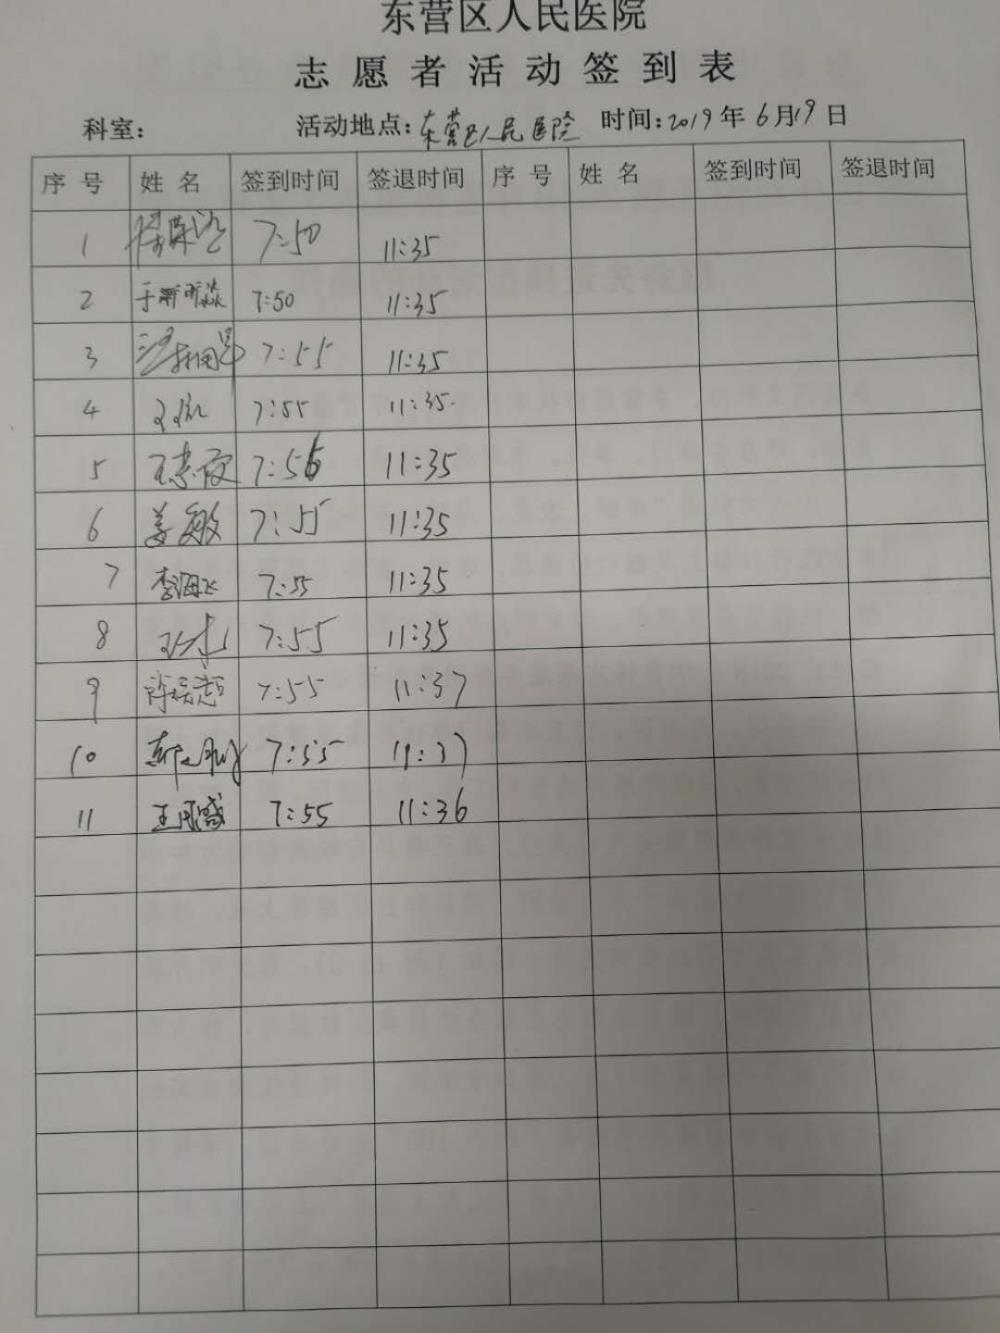 东营区人民医院
志愿者活动签到表
科室： 活动地点：东营区人民医院 时间：2019年6月19日
序号 姓名 签到时间 签退时间 序号 姓名 签到时间 签退时间
1 7:50 11:35
2 7:50 11:35
3 7:55 11:35
4 7:55 11:35
5 7:56 11:35
6 姜敏 7:55 11:35
7 李海飞 7:55 11:35
8 7:55 11:35
9 7:55 11:37
10 7:55 11:37
11 7:55 11:36